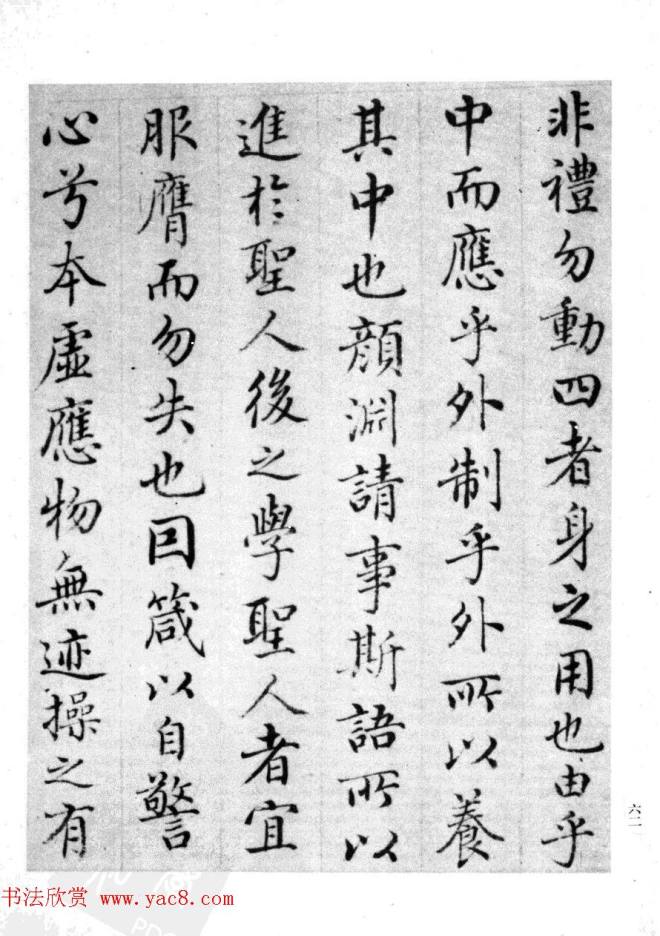 非禮勿動四者身之用也由乎
中而應乎外制乎外所以養
其中也顔淵請事斯語所以
進於聖人後之學聖人者宜
服膺而勿失也囙箴以自警
心兮本虛應物無迹操之有
六二
书法欣赏 www.yac8.com